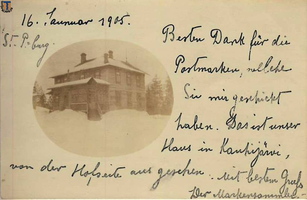 16. Januar 1905.
St. P.burg
Besten Dank für die
Postmarken, welche
Sie mir geschickt
haben. Das ist unser
Haus in Kaukijärvi,
von der Hofseite aus gesehen. Mit bestem Gruß
Der Markensammler